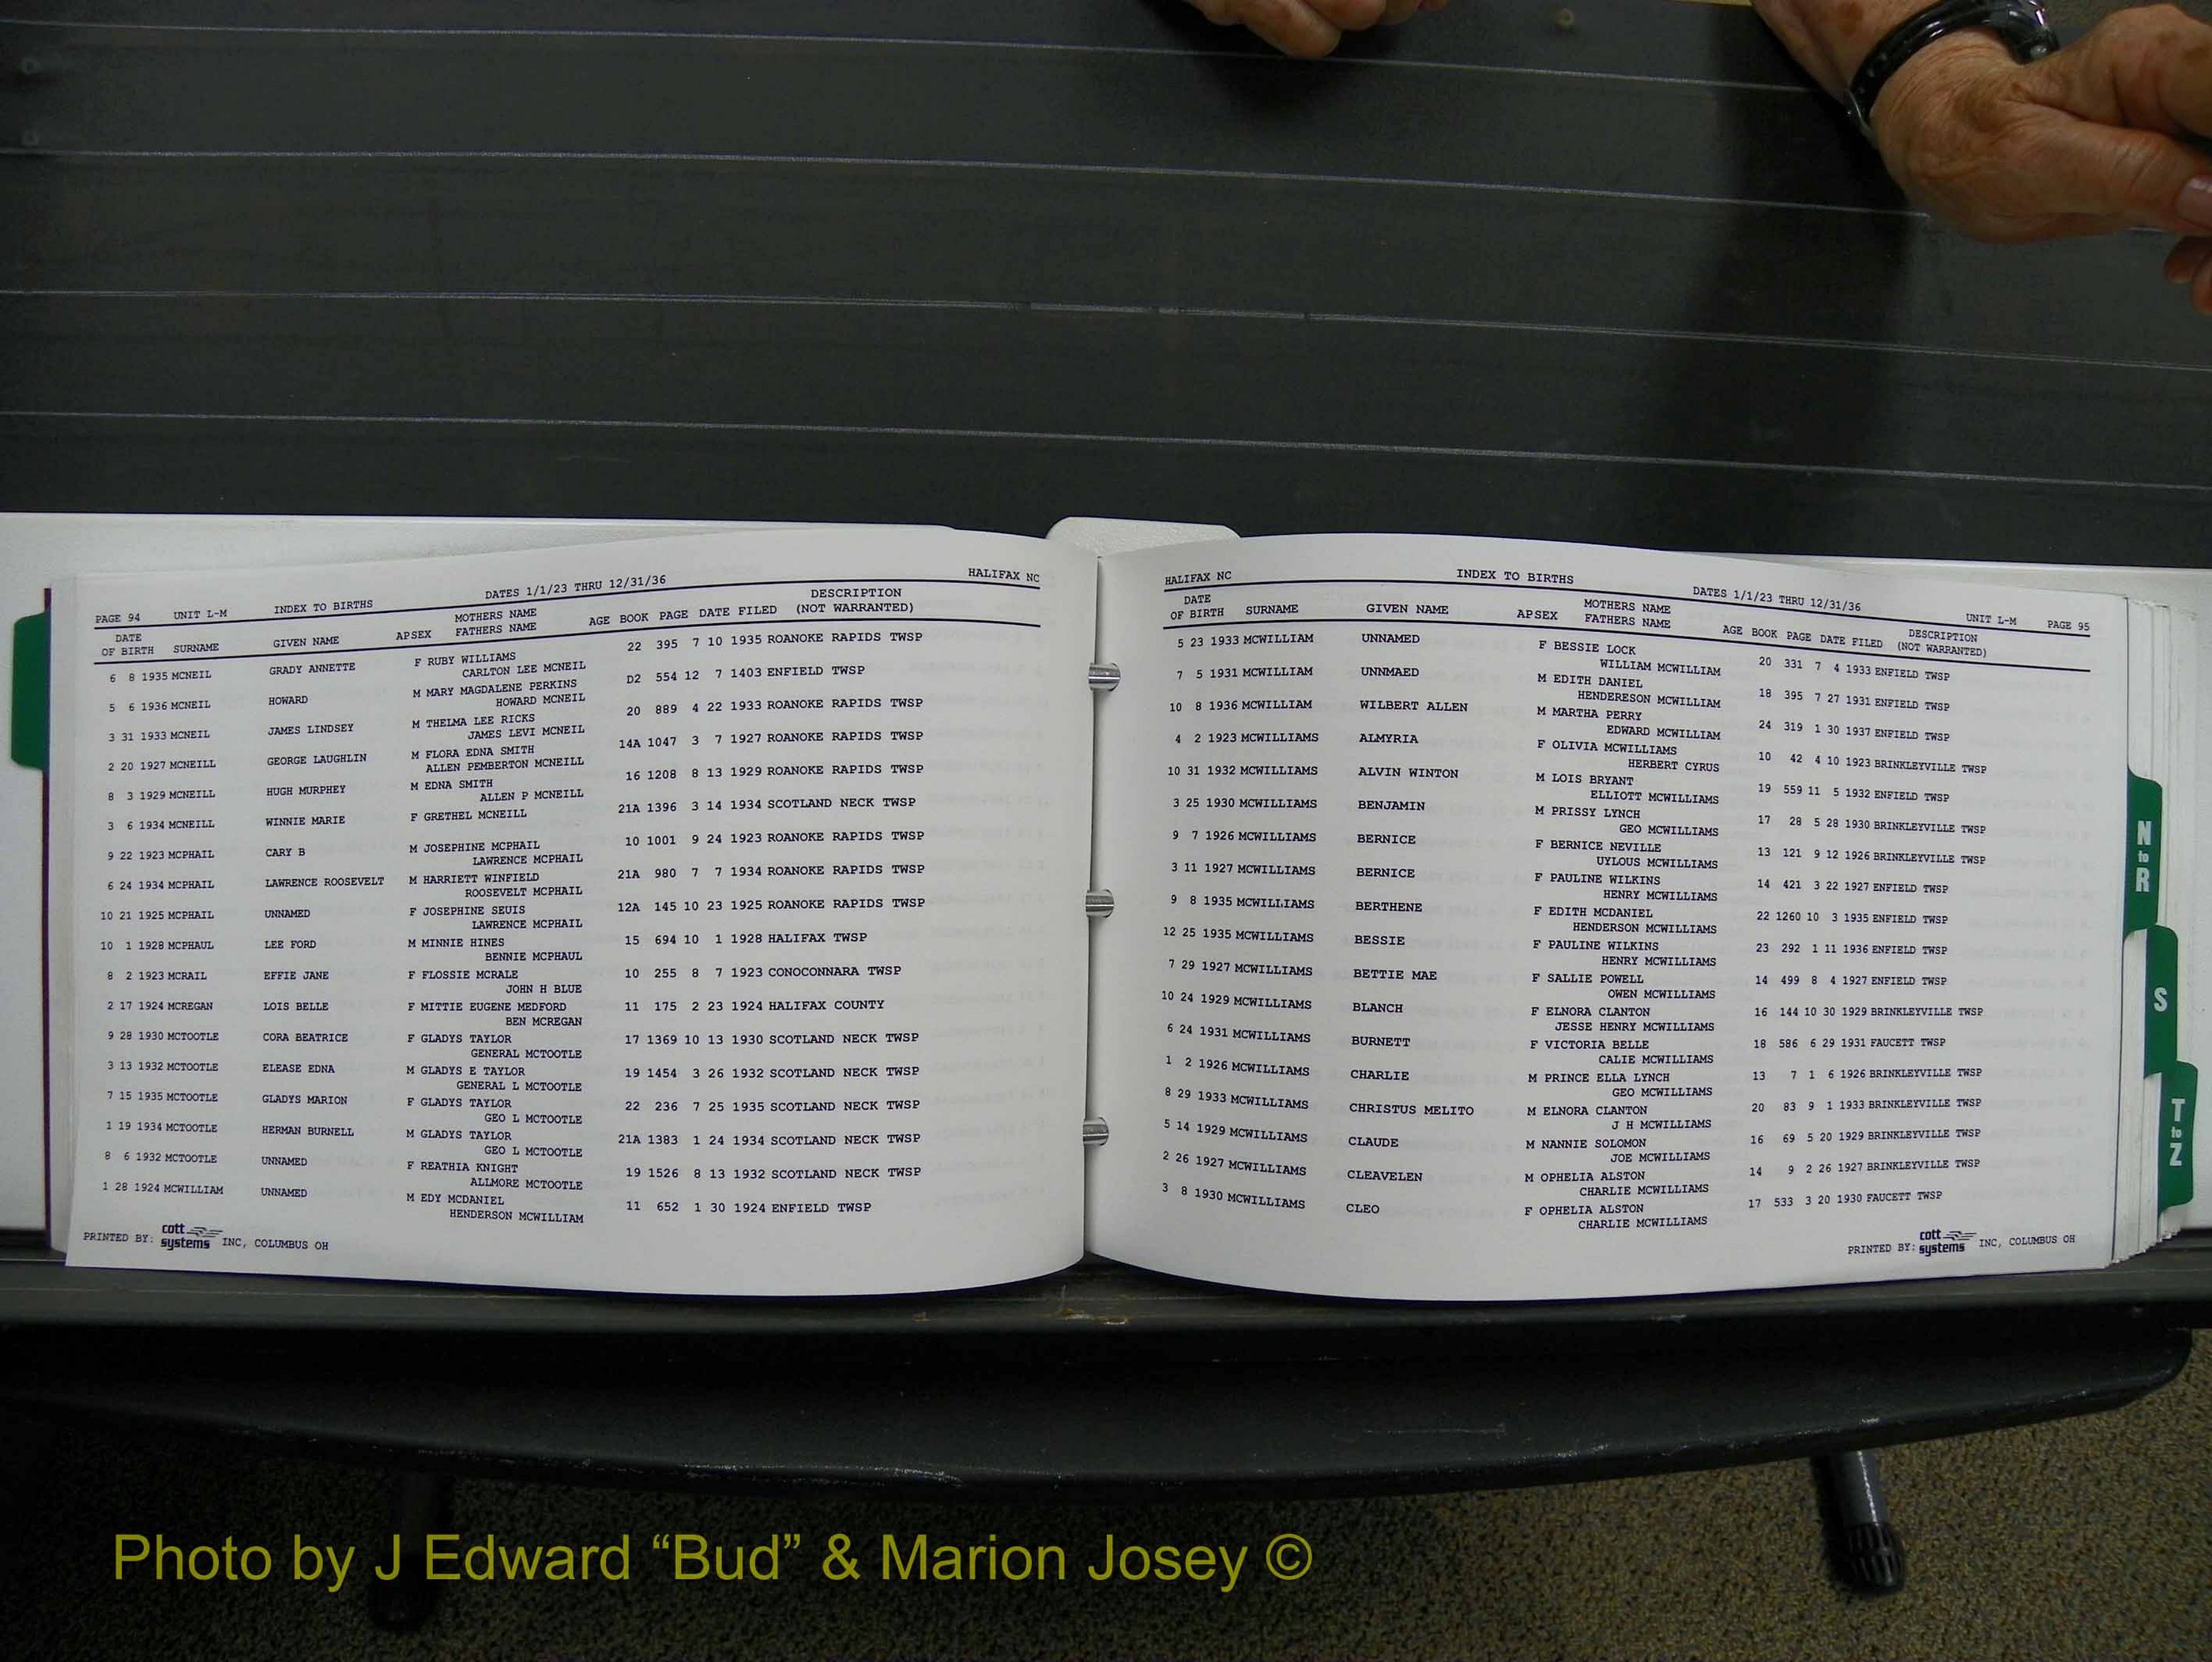 PAGE 94 UNIT L-M INDEX TO BIRTHS DATES 1/1/23 THRU 12/31/36 HALIFAX NC
DATE OF BIRTH SURNAME GIVEN NAME AP SEX MOTHERS NAME FATHERS NAME AGE BOOK PAGE DATE FILED DESCRIPTION (NOT WARRANTED)
6 8 1935 MCNEIL GRADY ANNETTE F RUBY WILLIAMS 22 395 7 10 1935 ROANOKE RAPIDS TWSP
CARLTON LEE MCNEIL
5 6 1936 MCNEIL HOWARD M MARY MAGDALENE PERKINS D2 554 12 7 1403 ENFIELD TWSP
HOWARD MCNEIL
3 31 1933 MCNEIL JAMES LINDSEY M THELMA LEE RICKS 20 889 4 22 1933 ROANOKE RAPIDS TWSP
JAMES LEVI MCNEIL
2 20 1927 MCNEILL GEORGE LAUGHLIN M FLORA EDNA SMITH 14A 1047 3 7 1927 ROANOKE RAPIDS TWSP
ALLEN PEMBERTON MCNEILL
8 3 1929 MCNEILL HUGH MURPHEY M EDNA SMITH 16 1208 8 13 1929 ROANOKE RAPIDS TWSP
ALLEN P MCNEILL
3 6 1934 MCNEILL WINNIE MARIE F GRETHEL MCNEILL 21A 1396 3 14 1934 SCOTLAND NECK TWSP
9 22 1923 MCPHAIL CARY B M JOSEPHINE MCPHAIL 10 1001 9 24 1923 ROANOKE RAPIDS TWSP
LAWRENCE MCPHAIL
6 24 1934 MCPHAIL LAWRENCE ROOSEVELT M HARRIETT WINFIELD 21A 980 7 7 1934 ROANOKE RAPIDS TWSP
ROOSEVELT MCPHAIL
10 21 1925 MCPHAIL UNNAMED F JOSEPHINE SEUIS 12A 145 10 23 1925 ROANOKE RAPIDS TWSP
LAWRENCE MCPHAIL
10 1 1928 MCPHAUL LEE FORD M MINNIE HINES 15 694 10 1 1928 HALIFAX TWSP
BENNIE MCPHAUL
8 2 1923 MCRAIL EFFIE JANE F FLOSSIE MCRALE 10 255 8 7 1923 CONOCONNARA TWSP
JOHN H BLUE
2 17 1924 MCREGAN LOIS BELLE F MITTIE EUGENE MEDFORD 11 175 2 23 1924 HALIFAX COUNTY
BEN MCREGAN
9 28 1930 MCTOOTLE CORA BEATRICE F GLADYS TAYLOR 17 1369 10 13 1930 SCOTLAND NECK TWSP
GENERAL MCTOOTLE
3 13 1932 MCTOOTLE ELEASE EDNA M GLADYS E TAYLOR 19 1454 3 26 1932 SCOTLAND NECK TWSP
GENERAL L MCTOOTLE
7 15 1935 MCTOOTLE GLADYS MARION F GLADYS TAYLOR 22 236 7 25 1935 SCOTLAND NECK TWSP
GEO L MCTOOTLE
1 19 1934 MCTOOTLE HERMAN BURNELL M GLADYS TAYLOR 21A 1383 1 24 1934 SCOTLAND NECK TWSP
GEO L MCTOOTLE
8 6 1932 MCTOOTLE UNNAMED F REATHIA KNIGHT 19 1526 8 13 1932 SCOTLAND NECK TWSP
ALLMORE MCTOOTLE
1 28 1924 MCWILLIAM UNNAMED M EDY MCDANIEL 11 652 1 30 1924 ENFIELD TWSP
HENDERSON MCWILLIAM
PRINTED BY: cott systems INC, COLUMBUS OH
HALIFAX NC INDEX TO BIRTHS DATES 1/1/23 THRU 12/31/36 UNIT L-M PAGE 95
DATE OF BIRTH SURNAME GIVEN NAME AP SEX MOTHERS NAME FATHERS NAME AGE BOOK PAGE DATE FILED DESCRIPTION (NOT WARRANTED)
5 23 1933 MCWILLIAM UNNAMED F BESSIE LOCK 20 331 7 4 1933 ENFIELD TWSP
WILLIAM MCWILLIAM
7 5 1931 MCWILLIAM UNNMAED M EDITH DANIEL 18 395 7 27 1931 ENFIELD TWSP
HENDERESON MCWILLIAM
10 8 1936 MCWILLIAM WILBERT ALLEN M MARTHA PERRY 24 319 1 30 1937 ENFIELD TWSP
EDWARD MCWILLIAM
4 2 1923 MCWILLIAMS ALMYRIA F OLIVIA MCWILLIAMS 10 42 4 10 1923 BRINKLEYVILLE TWSP
HERBERT CYRUS
10 31 1932 MCWILLIAMS ALVIN WINTON M LOIS BRYANT 19 559 11 5 1932 ENFIELD TWSP
ELLIOTT MCWILLIAMS
3 25 1930 MCWILLIAMS BENJAMIN M PRISSY LYNCH 17 28 5 28 1930 BRINKLEYVILLE TWSP
GEO MCWILLIAMS
9 7 1926 MCWILLIAMS BERNICE F BERNICE NEVILLE 13 121 9 12 1926 BRINKLEYVILLE TWSP
UYLOUS MCWILLIAMS
3 11 1927 MCWILLIAMS BERNICE F PAULINE WILKINS 14 421 3 22 1927 ENFIELD TWSP
HENRY MCWILLIAMS
9 8 1935 MCWILLIAMS BERTHENE F EDITH MCDANIEL 22 1260 10 3 1935 ENFIELD TWSP
HENDERSON MCWILLIAMS
12 25 1935 MCWILLIAMS BESSIE F PAULINE WILKINS 23 292 1 11 1936 ENFIELD TWSP
HENRY MCWILLIAMS
7 29 1927 MCWILLIAMS BETTIE MAE F SALLIE POWELL 14 499 8 4 1927 ENFIELD TWSP
OWEN MCWILLIAMS
10 24 1929 MCWILLIAMS BLANCH F ELNORA CLANTON 16 144 10 30 1929 BRINKLEYVILLE TWSP
JESSE HENRY MCWILLIAMS
6 24 1931 MCWILLIAMS BURNETT F VICTORIA BELLE 18 586 6 29 1931 FAUCETT TWSP
CALIE MCWILLIAMS
1 2 1926 MCWILLIAMS CHARLIE M PRINCE ELLA LYNCH 13 7 1 6 1926 BRINKLEYVILLE TWSP
GEO MCWILLIAMS
8 29 1933 MCWILLIAMS CHRISTUS MELITO M ELNORA CLANTON 20 83 9 1 1933 BRINKLEYVILLE TWSP
J H MCWILLIAMS
5 14 1929 MCWILLIAMS CLAUDE M NANNIE SOLOMON 16 69 5 20 1929 BRINKLEYVILLE TWSP
JOE MCWILLIAMS
2 26 1927 MCWILLIAMS CLEAVELEN M OPHELIA ALSTON 14 9 2 26 1927 BRINKLEYVILLE TWSP
CHARLIE MCWILLIAMS
3 8 1930 MCWILLIAMS CLEO F OPHELIA ALSTON 17 533 3 20 1930 FAUCETT TWSP
CHARLIE MCWILLIAMS
PRINTED BY: cott systems INC, COLUMBUS OH
N to R
S
T to Z
Photo by J Edward “Bud” & Marion Josey ©